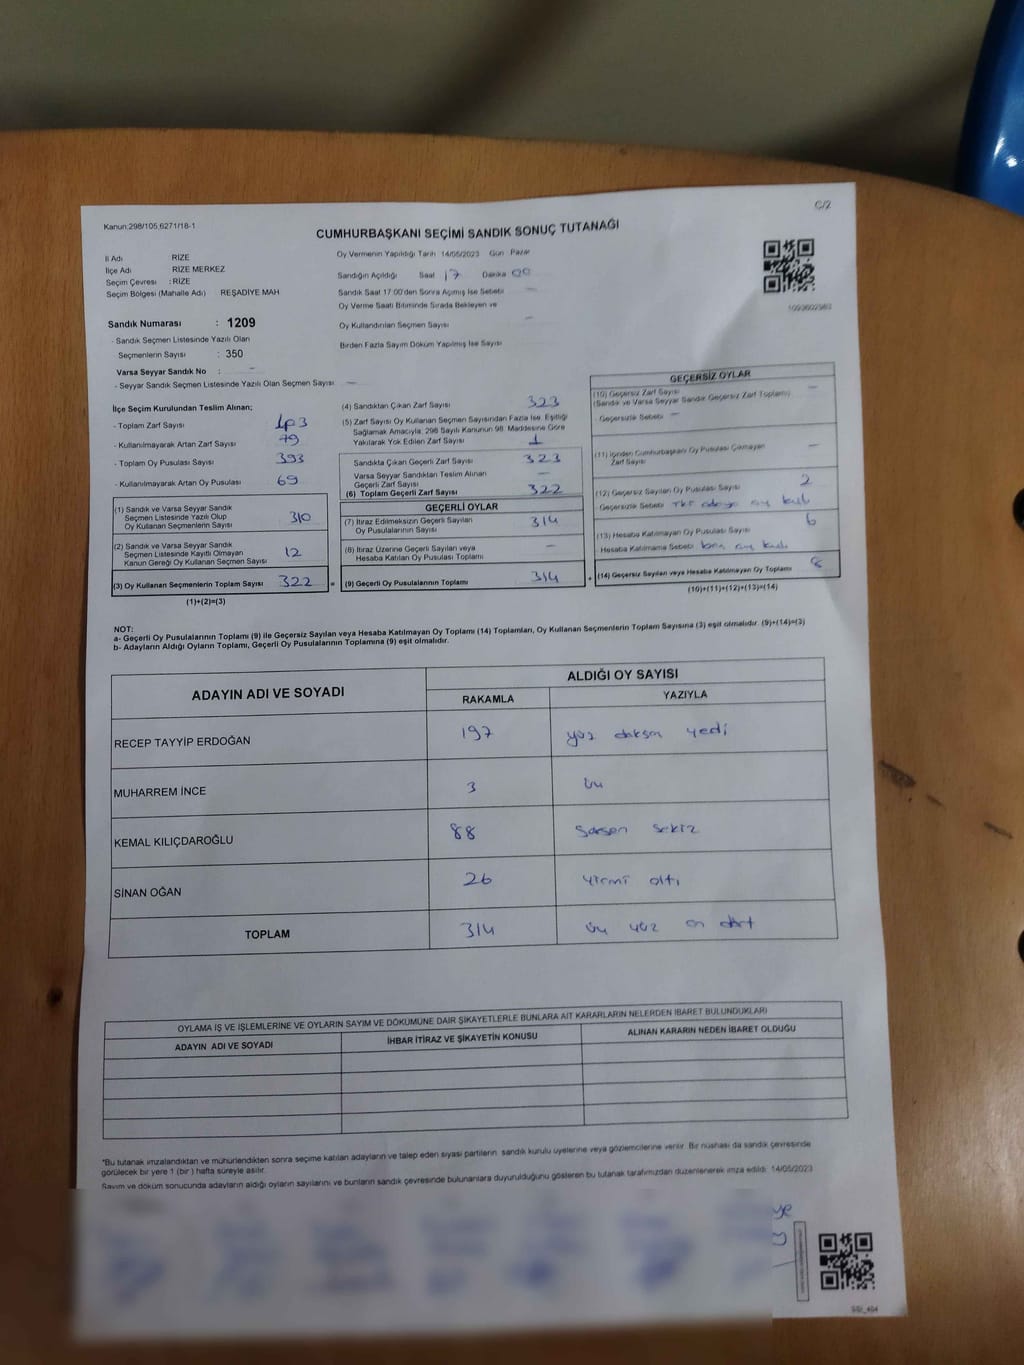 Kanun:298/105,6271/18-1
C/2
CUMHURBAŞKANI SEÇİMİ SANDIK SONUÇ TUTANAĞI
İl Adı RİZE
İlçe Adı RİZE MERKEZ
Seçim Çevresi : RİZE
Seçim Bölgesi (Mahalle Adı) REŞADİYE MAH
Sandık Numarası : 1209
- Sandık Seçmen Listesinde Yazılı Olan
Seçmenlerin Sayısı : 350
Varsa Seyyar Sandık No : -
- Seyyar Sandık Seçmen Listesinde Yazılı Olan Seçmen Sayısı -
Oy Vermenin Yapıldığı Tarih 14/05/2023 Gün Pazar
Sandığın Açıldığı Saat 17 Dakika 00
Sandık Saat 17:00'den Sonra Açımış İse Sebebi -
Oy Verme Saati Bitiminde Sırada Bekleyen ve
Oy Kullandırılan Seçmen Sayısı -
Birden Fazla Sayım Döküm Yapılmış İse Sayısı
İlçe Seçim Kurulundan Teslim Alınan;
- Toplam Zarf Sayısı
- Kullanılmayarak Artan Zarf Sayısı 79
- Toplam Oy Pusulası Sayısı 393
- Kullanılmayarak Artan Oy Pusulası 69
(1) Sandık ve Varsa Seyyar Sandık
Seçmen Listesinde Yazılı Olup
Oy Kullanan Seçmenlerin Sayısı 310
(2) Sandık ve Varsa Seyyar Sandık
Seçmen Listesinde Kayıtlı Olmayan
Kanun Gereği Oy Kullanan Seçmen Sayısı 12
(3) Oy Kullanan Seçmenlerin Toplam Sayısı 322 =
(1)+(2)=(3)
(4) Sandıktan Çıkan Zarf Sayısı 323
(5) Zarf Sayısı Oy Kullanan Seçmen Sayısından Fazla İse, Eşitliği
Sağlamak Amacıyla, 298 Sayılı Kanunun 98. Maddesine Göre
Yakılarak Yok Edilen Zarf Sayısı 1
Sandıkta Çıkan Geçerli Zarf Sayısı 323
Varsa Seyyar Sandıktan Teslim Alınan
Geçerli Zarf Sayısı -
(6) Toplam Geçerli Zarf Sayısı 322
GEÇERLİ OYLAR
(7) İtiraz Edilmeksizin Geçerli Sayılan
Oy Pusulalarının Sayısı 314
(8) İtiraz Üzerine Geçerli Sayılan veya
Hesaba Katılan Oy Pusulası Toplamı -
(9) Geçerli Oy Pusulalarının Toplamı 314 +
GEÇERSİZ OYLAR
(10) Geçersiz Zarf Sayısı -
(Sandık ve Varsa Seyyar Sandık Geçersiz Zarf Toplamı)
- Geçersizlik Sebebi -
(11) İçinden Cumhurbaşkanı Oy Pusulası Çıkmayan
Zarf Sayısı -
(12) Geçersiz Sayılan Oy Pusulası Sayısı 2
Geçersizlik Sebebi
(13) Hesaba Katılmayan Oy Pusulası Sayısı 6
Hesaba Katılmama Sebebi
(14) Geçersiz Sayılan veya Hesaba Katılmayan Oy Toplamı 8
(10)+(11)+(12)+(13)=(14)
NOT:
a- Geçerli Oy Pusulalarının Toplamı (9) ile Geçersiz Sayılan veya Hesaba Katılmayan Oy Toplamı (14) Toplamları, Oy Kullanan Seçmenlerin Toplam Sayısına (3) eşit olmalıdır. (9)+(14)=(3)
b- Adayların Aldığı Oyların Toplamı, Geçerli Oy Pusulalarının Toplamına (9) eşit olmalıdır.
ADAYIN ADI VE SOYADI ALDIĞI OY SAYISI
RAKAMLA YAZIYLA
RECEP TAYYİP ERDOĞAN 197 yüz doksan yedi
MUHARREM İNCE 3 üç
KEMAL KILIÇDAROĞLU 88 seksen sekiz
SİNAN OĞAN 26 yirmi altı
TOPLAM 314 üç yüz on dört
OYLAMA İŞ VE İŞLEMLERİNE VE OYLARIN SAYIM VE DÖKÜMÜNE DAİR ŞİKAYETLERLE BUNLARA AİT KARARLARIN NELERDEN İBARET BULUNDUKLARI
ADAYIN ADI VE SOYADI İHBAR İTİRAZ VE ŞİKAYETİN KONUSU ALINAN KARARIN NEDEN İBARET OLDUĞU
*Bu tutanak imzalandıktan ve mühürlendikten sonra seçime katılan adayların ve talep eden siyasi partilerin sandık kurulu üyelerine veya gözlemcilerine verilir. Bir nüshası da sandık çevresinde
görülecek bir yere 1 (bir) hafta süreyle asılır.
Sayım ve döküm sonucunda adayların aldığı oyların sayılarını ve bunların sandık çevresinde bulunanlara duyurulduğunu gösteren bu tutanak tarafımızdan düzenlenerek imza edildi. 14/05/2023